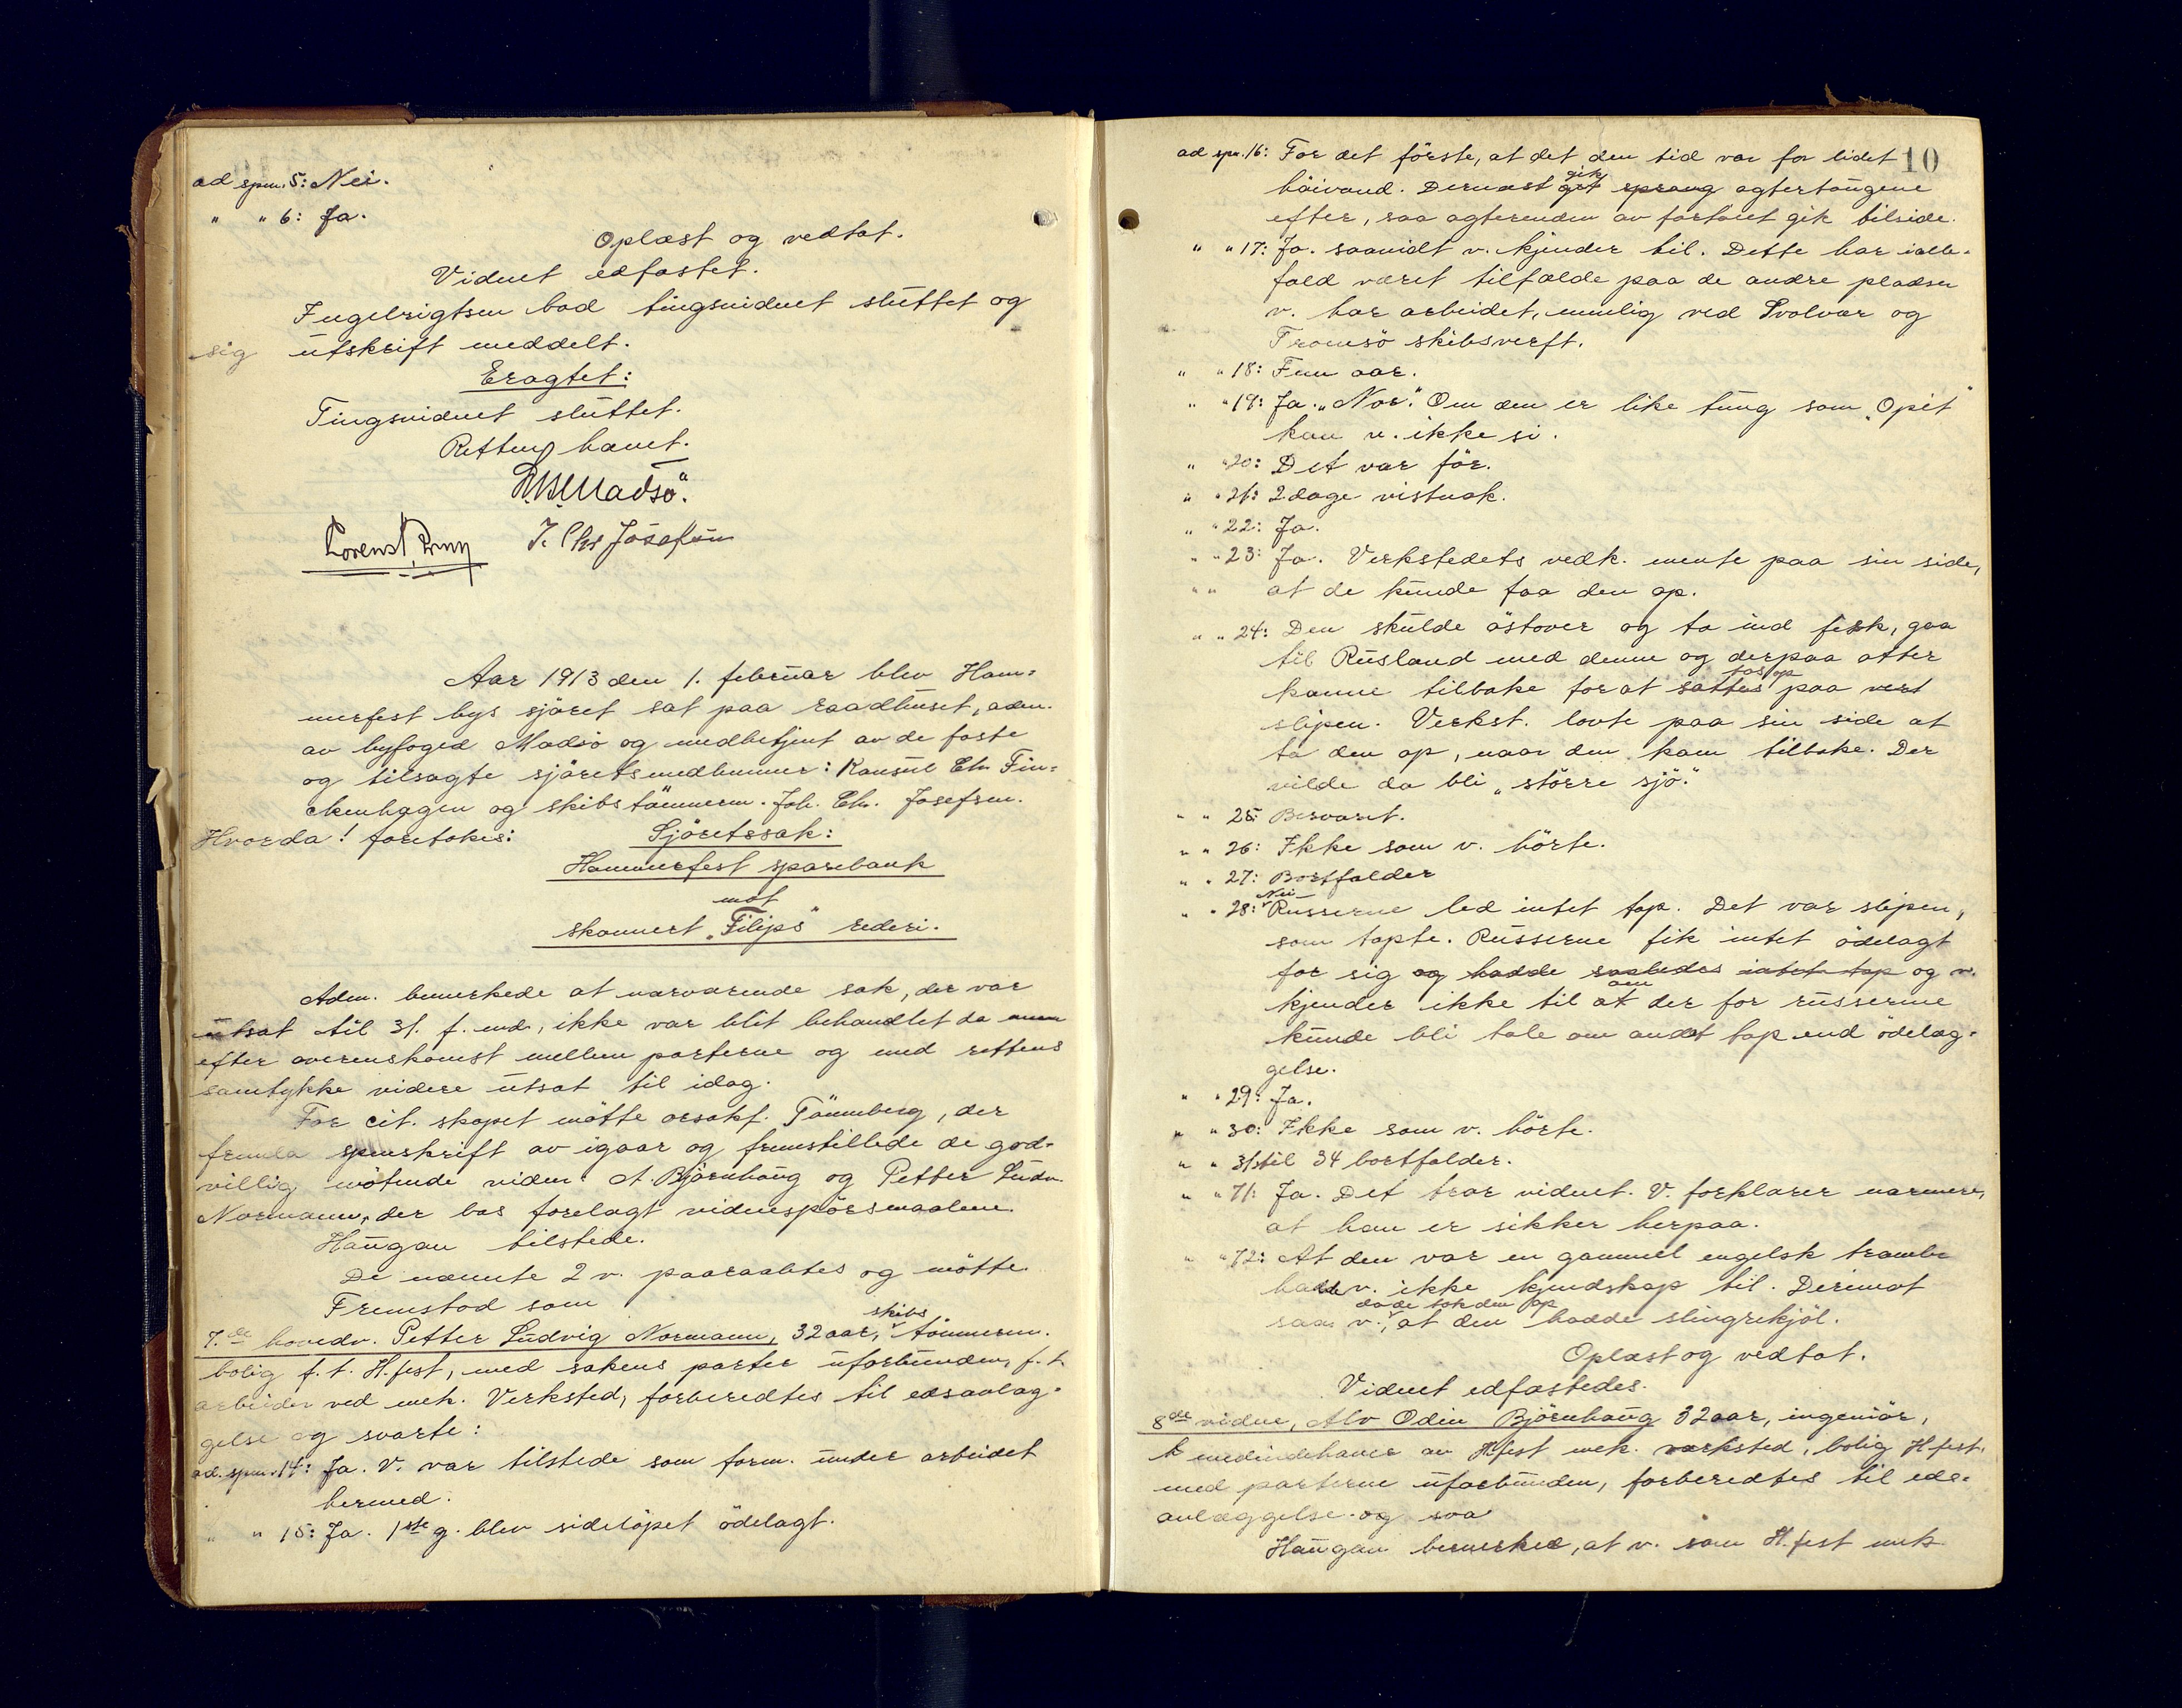 ad spm. 5: Nei.
" " 6: Ja.
Oplæst og vedtat.
Vidnet edfæstet.
Ingebrigtsen bad tingsvidnet sluttet og
sig utskrift meddelt.
Eragtet:
Tingsvidnet sluttet.
Retten hævet.
Madsö.
J. Chr Josefsen
Aar 1913 den 1. februar blev Ham=
merfest bys sjöret sat paa raadhuset, adm.
av byfoged Madsö og medbetjent av de faste
og tilsagte sjöretsmedlemmer: Konsul Chr Fin=
ckenhagen og skibstömmerm. Joh. Chr. Josefsen.
Hvorda! foretokes: Sjöretssak:
Hammerfest sparebank
mot
skonnert "Filips" rederi.
Adm. bemerkede at nærværende sak, der var
utsat til 31. f. md., ikke var blit behandlet da
efter overenskomst mellem parterne og med rettens
samtykke videre utsat til idag.
For cit. skapet mötte orsakf. Tönnberg, der
fremla spmskrift av igaar og fremstillede de god=
villig mötende vidner A. Björnhaug og Petter Ludv.
Normann, der bas forelagt vidnespörsmaalene.
Haugan tilstede.
De nævnte 2 v. paaraabtes og mötte.
Fremstod som
7.de hovedv. Petter Ludvig Normann, 32 aar, skibstömmerm.
bolig f. t. H.fest, med sakens parter uforbunden, f. t.
arbeider ved mek. Verksted, forberedtes til edsavlæg=
gelse og svarte:
ad. spm. 14: Ja. V. var tilstede som form. under arbeidet
hermed.
" " 15: Ja. 1ste g. blev sidelöpet ödelagt.
10
ad spm. 16: For det förste, at det den tid var for lidet
höivand. Dernæst gik sprang agtertaugene
efter, saa agterenden av fartöiet gik tilside.
" " 17: Ja. saavidt v. kjender til. Dette har ialle=
fald været tilfælde paa de andre pladser
v. har arbeidet, nemlig ved Svolvær og
Tromsö skibsverft.
" " 18: Fem aar.
" " 19: Ja. "Nor". Om den er like tung som "Opit"
kan v. ikke si.
" " 20: Det var för.
" " 21: 2 dage vistnok.
" " 22: Ja.
" " 23: Ja. Verkstedets vedk. mente paa sin side,
" " at de kunde faa den op.
" " 24: Den skulde östover og ta ind fisk, gaa
til Rusland med denne og derpaa atter
komme tilbake for at sættes tas op paa vert
slipen. Verkst. lovte paa sin side at
ta den op, naar den kom tilbake. Der
vilde da bli "större sjö".
" " 25: Besvaret.
" " 26: Ikke som v. hörte.
" " 27: Bortfalder
" " 28: Nei Russerne led intet tap. Det var slipen,
som tapte. Russerne fik intet ödelagt
for sig og hadde saaledes intet tap og v.
kjender ikke til at om der for russerne
kunde bli tale om andet tap end ödelæg=
gelse.
" " 29: Ja.
" " 30: Ikke som v. hörte.
" " 31 til 34 bortfalder.
" " 71: Ja. Det tror vidnet. V. forklarer nærmere,
at han er sikker herpaa.
" " 72: At den var en gammel engelsk
hadde v. ikke kjendskap til. Derimot
saa v., da de tok den op at den hadde slingrekjöl.
Oplæst og vedtat.
Vidnet edfæstedes.
8de vidne, Alv Odin Björnhaug 32 aar, ingeniör,
medindehaver av H.fest mek. verksted, bolig H.fest.
med parterne uforbunden, forberedtes til eds=
avlæggelse og sva
Haugan bemerket, at v. som H.fest mek